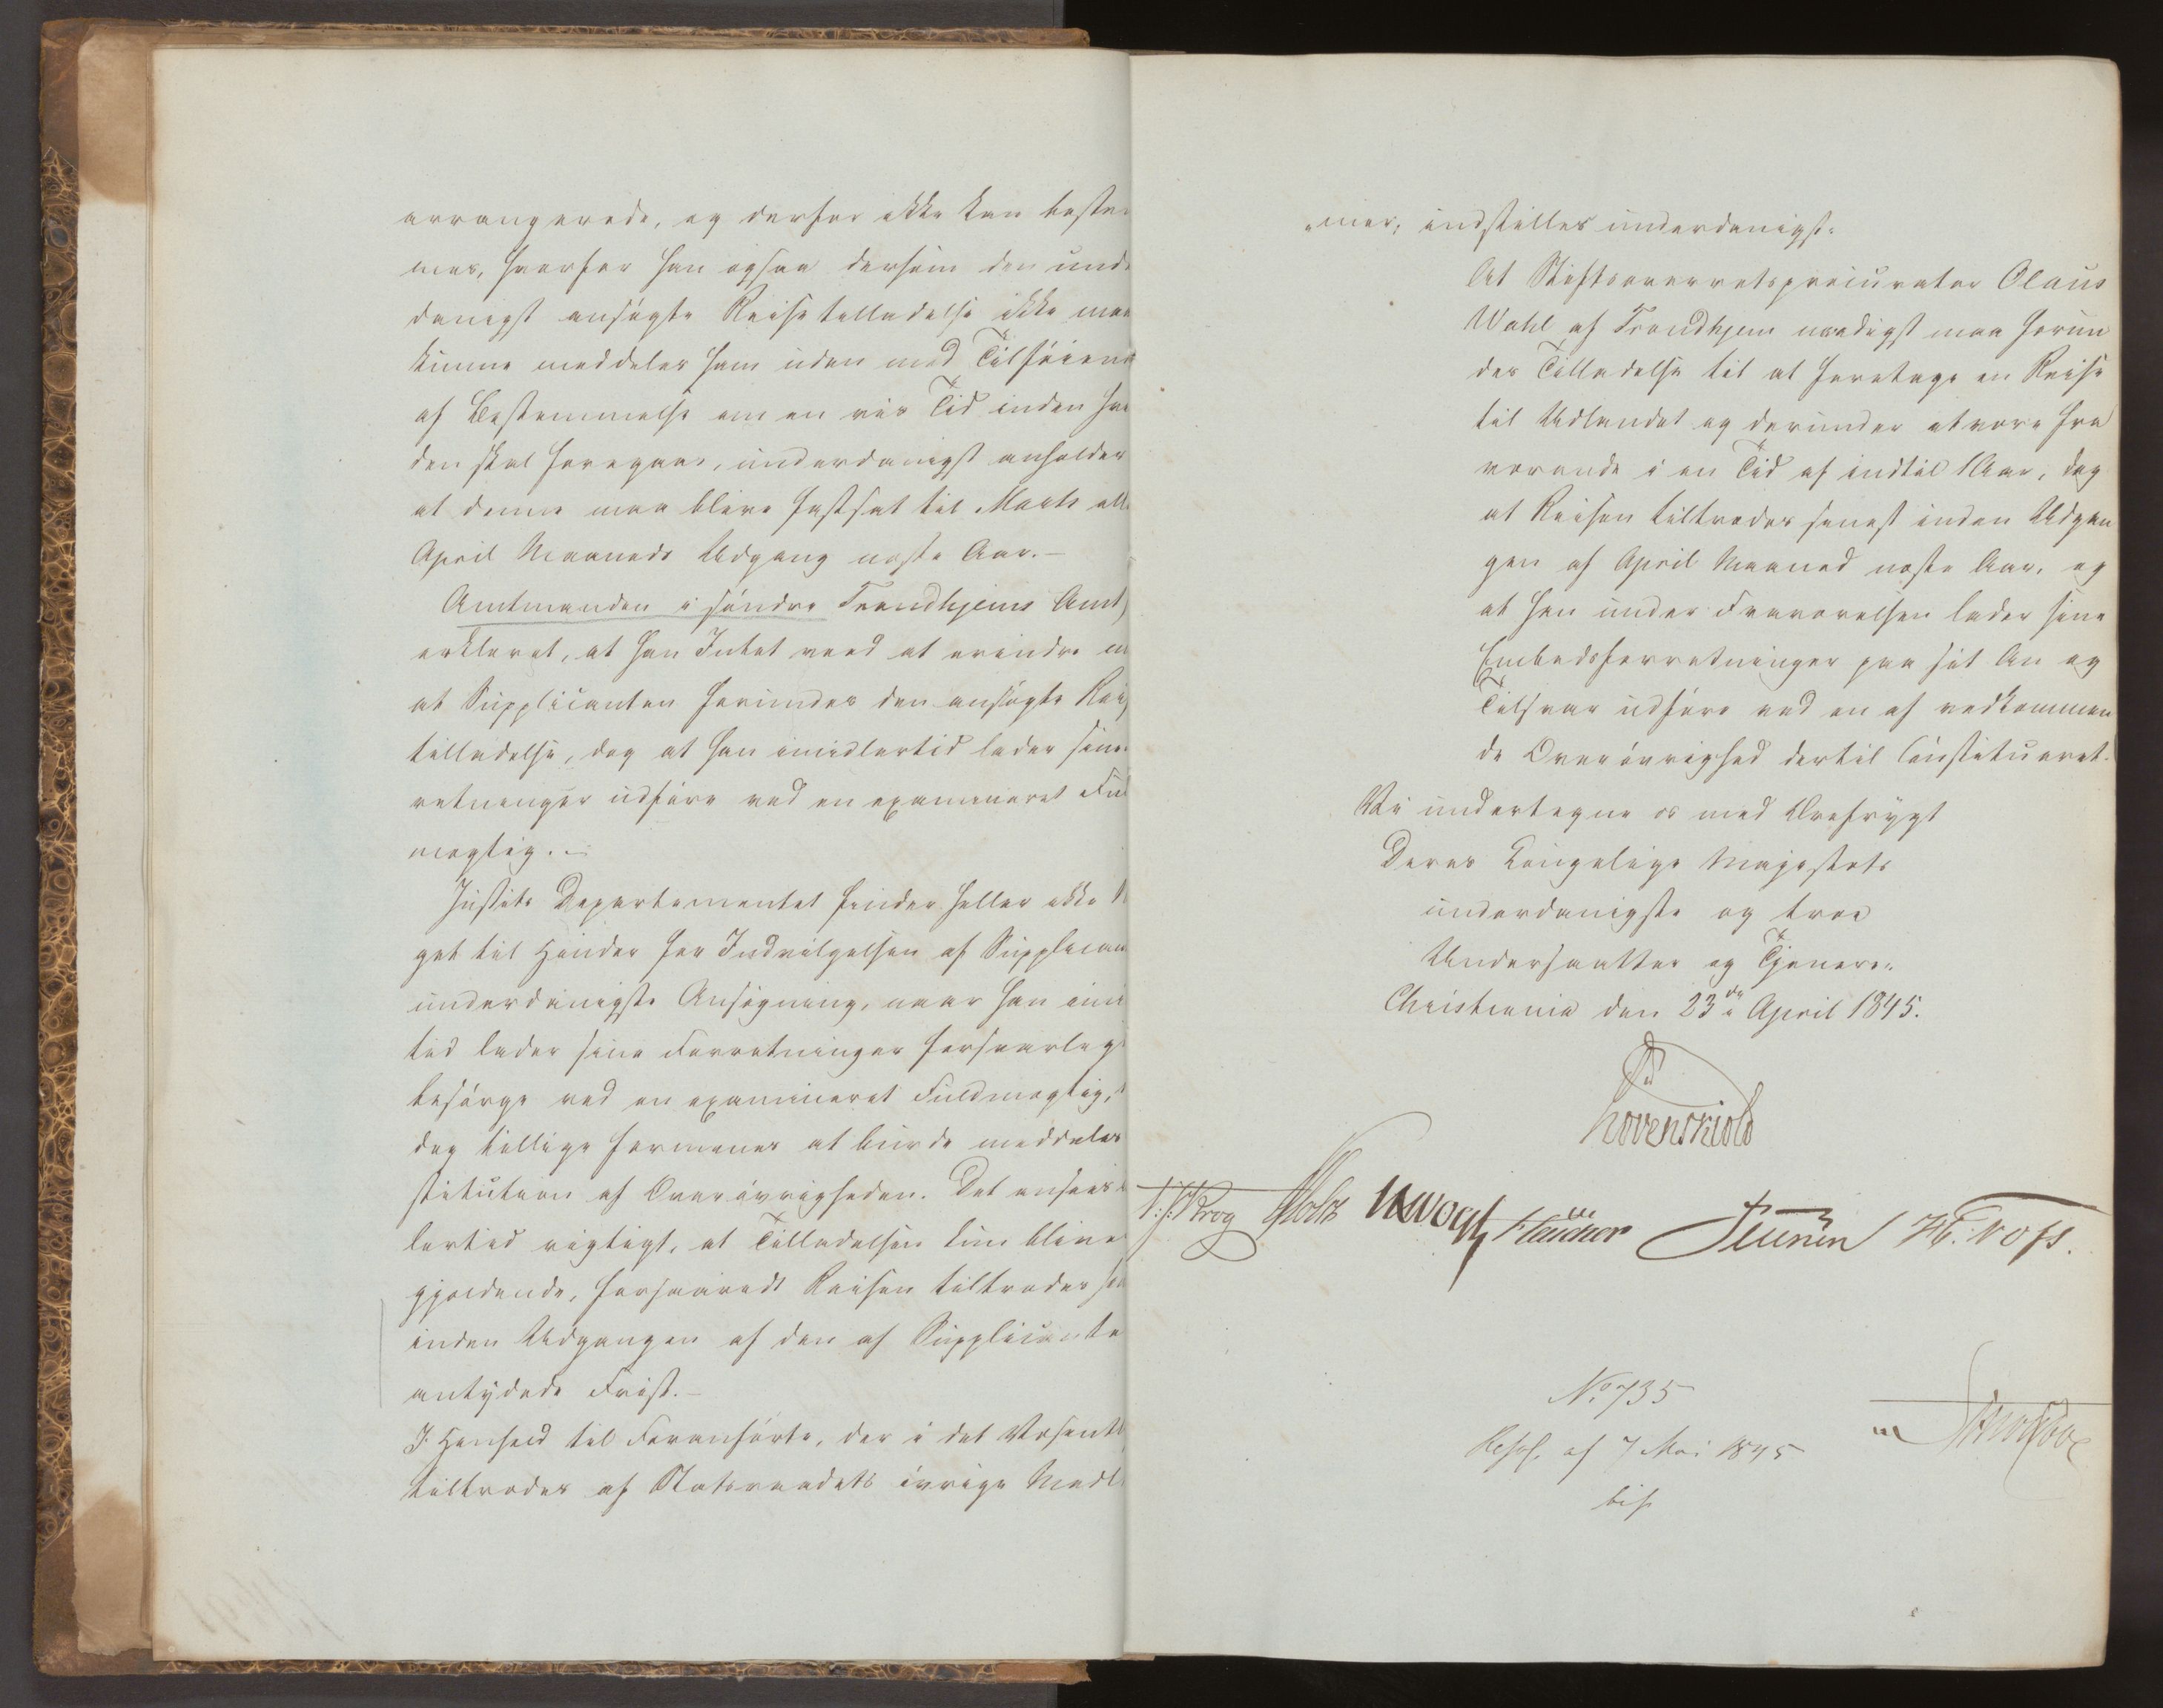 arrangerede, og derfor ikke kan bestem
mes, hvorfor han ogsaa dersom den unde
danigst ansøgte Reisetilladelse ikke maa
kunne meddeles ham uden med Tilføiend
af Bestemmelse om en vis Tid inden hvi
den skal foregaae, underdanigst anholder
at denne maa blive fastsat til Marts elle
April Maaneds Udgang næste Aar.—
Amtmanden i søndre Trondhjems Amt
erklæret, at han Intet veed at erindre
at Supplicanten forundes den ansøgte Rei
tilladelse, dog at han imidlertid lader sine
retninger udføre ved en examineret Fuld
mægtig.—
Justits Departementet finder heller ikke
get til Hinder for Indvilgelsen af Supplican
underdanigste Ansøgning, naar han imi
tid lader sine Forretninger forsvarlig
besørge ved en examineret Fuldmægtig,
dog tillige formenes at burde meddeles
stitution af Overøvrigheden. Det ansees
lertid rigtigt, at Tilladelsen kun bliver
gjældende, forsaavidt Reisen tiltrædes
inden Udgangen af den af Supplicante
antydede Frist.—
I Henhold til Foranførte, der i det Væsentl
tiltrædes af Statsraadets øvrige Medl
mer, indstilles underdanigst:
At Stiftsoverretsprocurator Olaus
Wahl af Trondhjem naadigst maa forun
des Tilladelse til at foretage en Reise
til Udlandet og derunder at være fra
værende i en Tid af indtil 1 Aar, dog
at Reisen tiltrædes senest inden Udgan
gen af April Maaned næste Aar, og
at han under Fraværelsen lader sine
Embedsforretninger paa sit An og
Tilsvar udføre ved en af vedkommen
de Overøvrighed dertil Constitueret.
Vi undertegne os med Ærefrygt
Deres Kongelige Majestæts
underdanigste og troe
Undersaatter og Tjenere.
Christiania den 23de April 1845.
Løvenskiold
Krog Holst Vogt Sibbern H. Foss.
No 735
Resol. af 7 Mai 1845